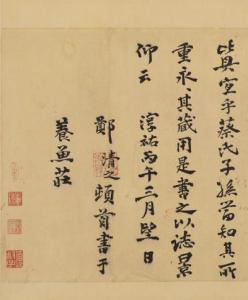 乎蔡氏子孫當知其所
重永其藏用是書之以誌景
仰云　淳祐丙午三月望日
鄭清之頓首書于
養魚莊